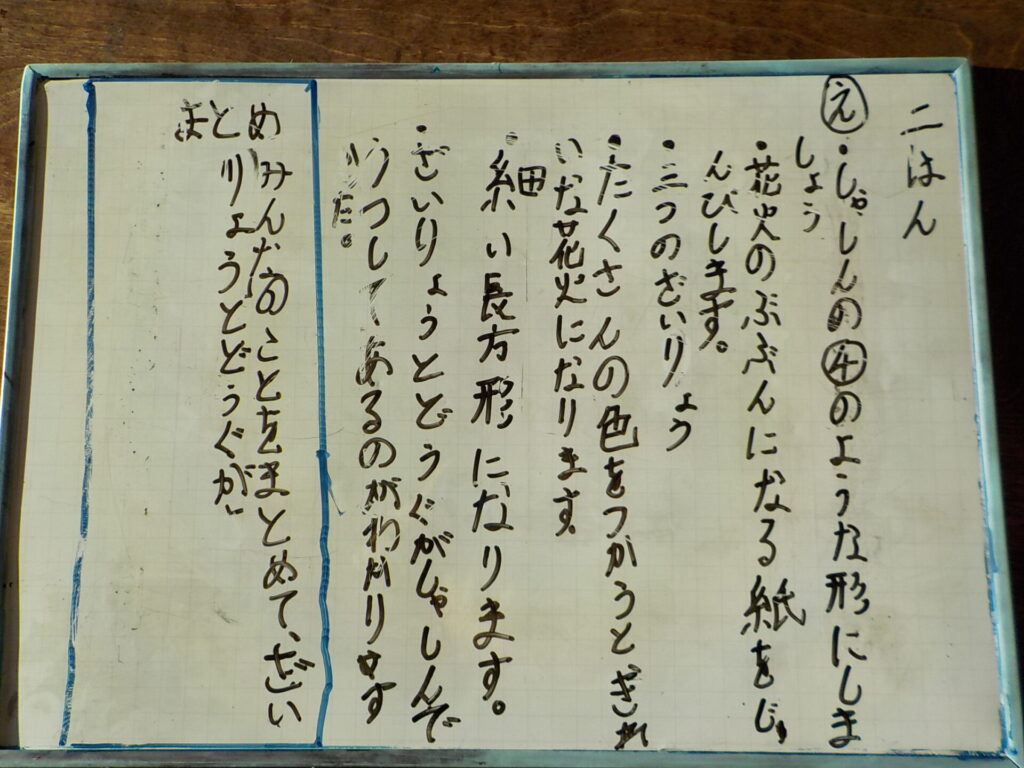 二はん
え・しゃしんの④のような形にしま
しょう
・花火のぶぶんになる紙をじゅ
んびします。
・三つのざいりょう
・たくさんの色をつかうときれ
いな花火になります。
・細い長方形になります。
・ざいりょうとどうぐがしゃしんで
うつしてあるのがわかります
だ。
まとめ
みんなのことをまとめて、ざい
りょうとどうぐが